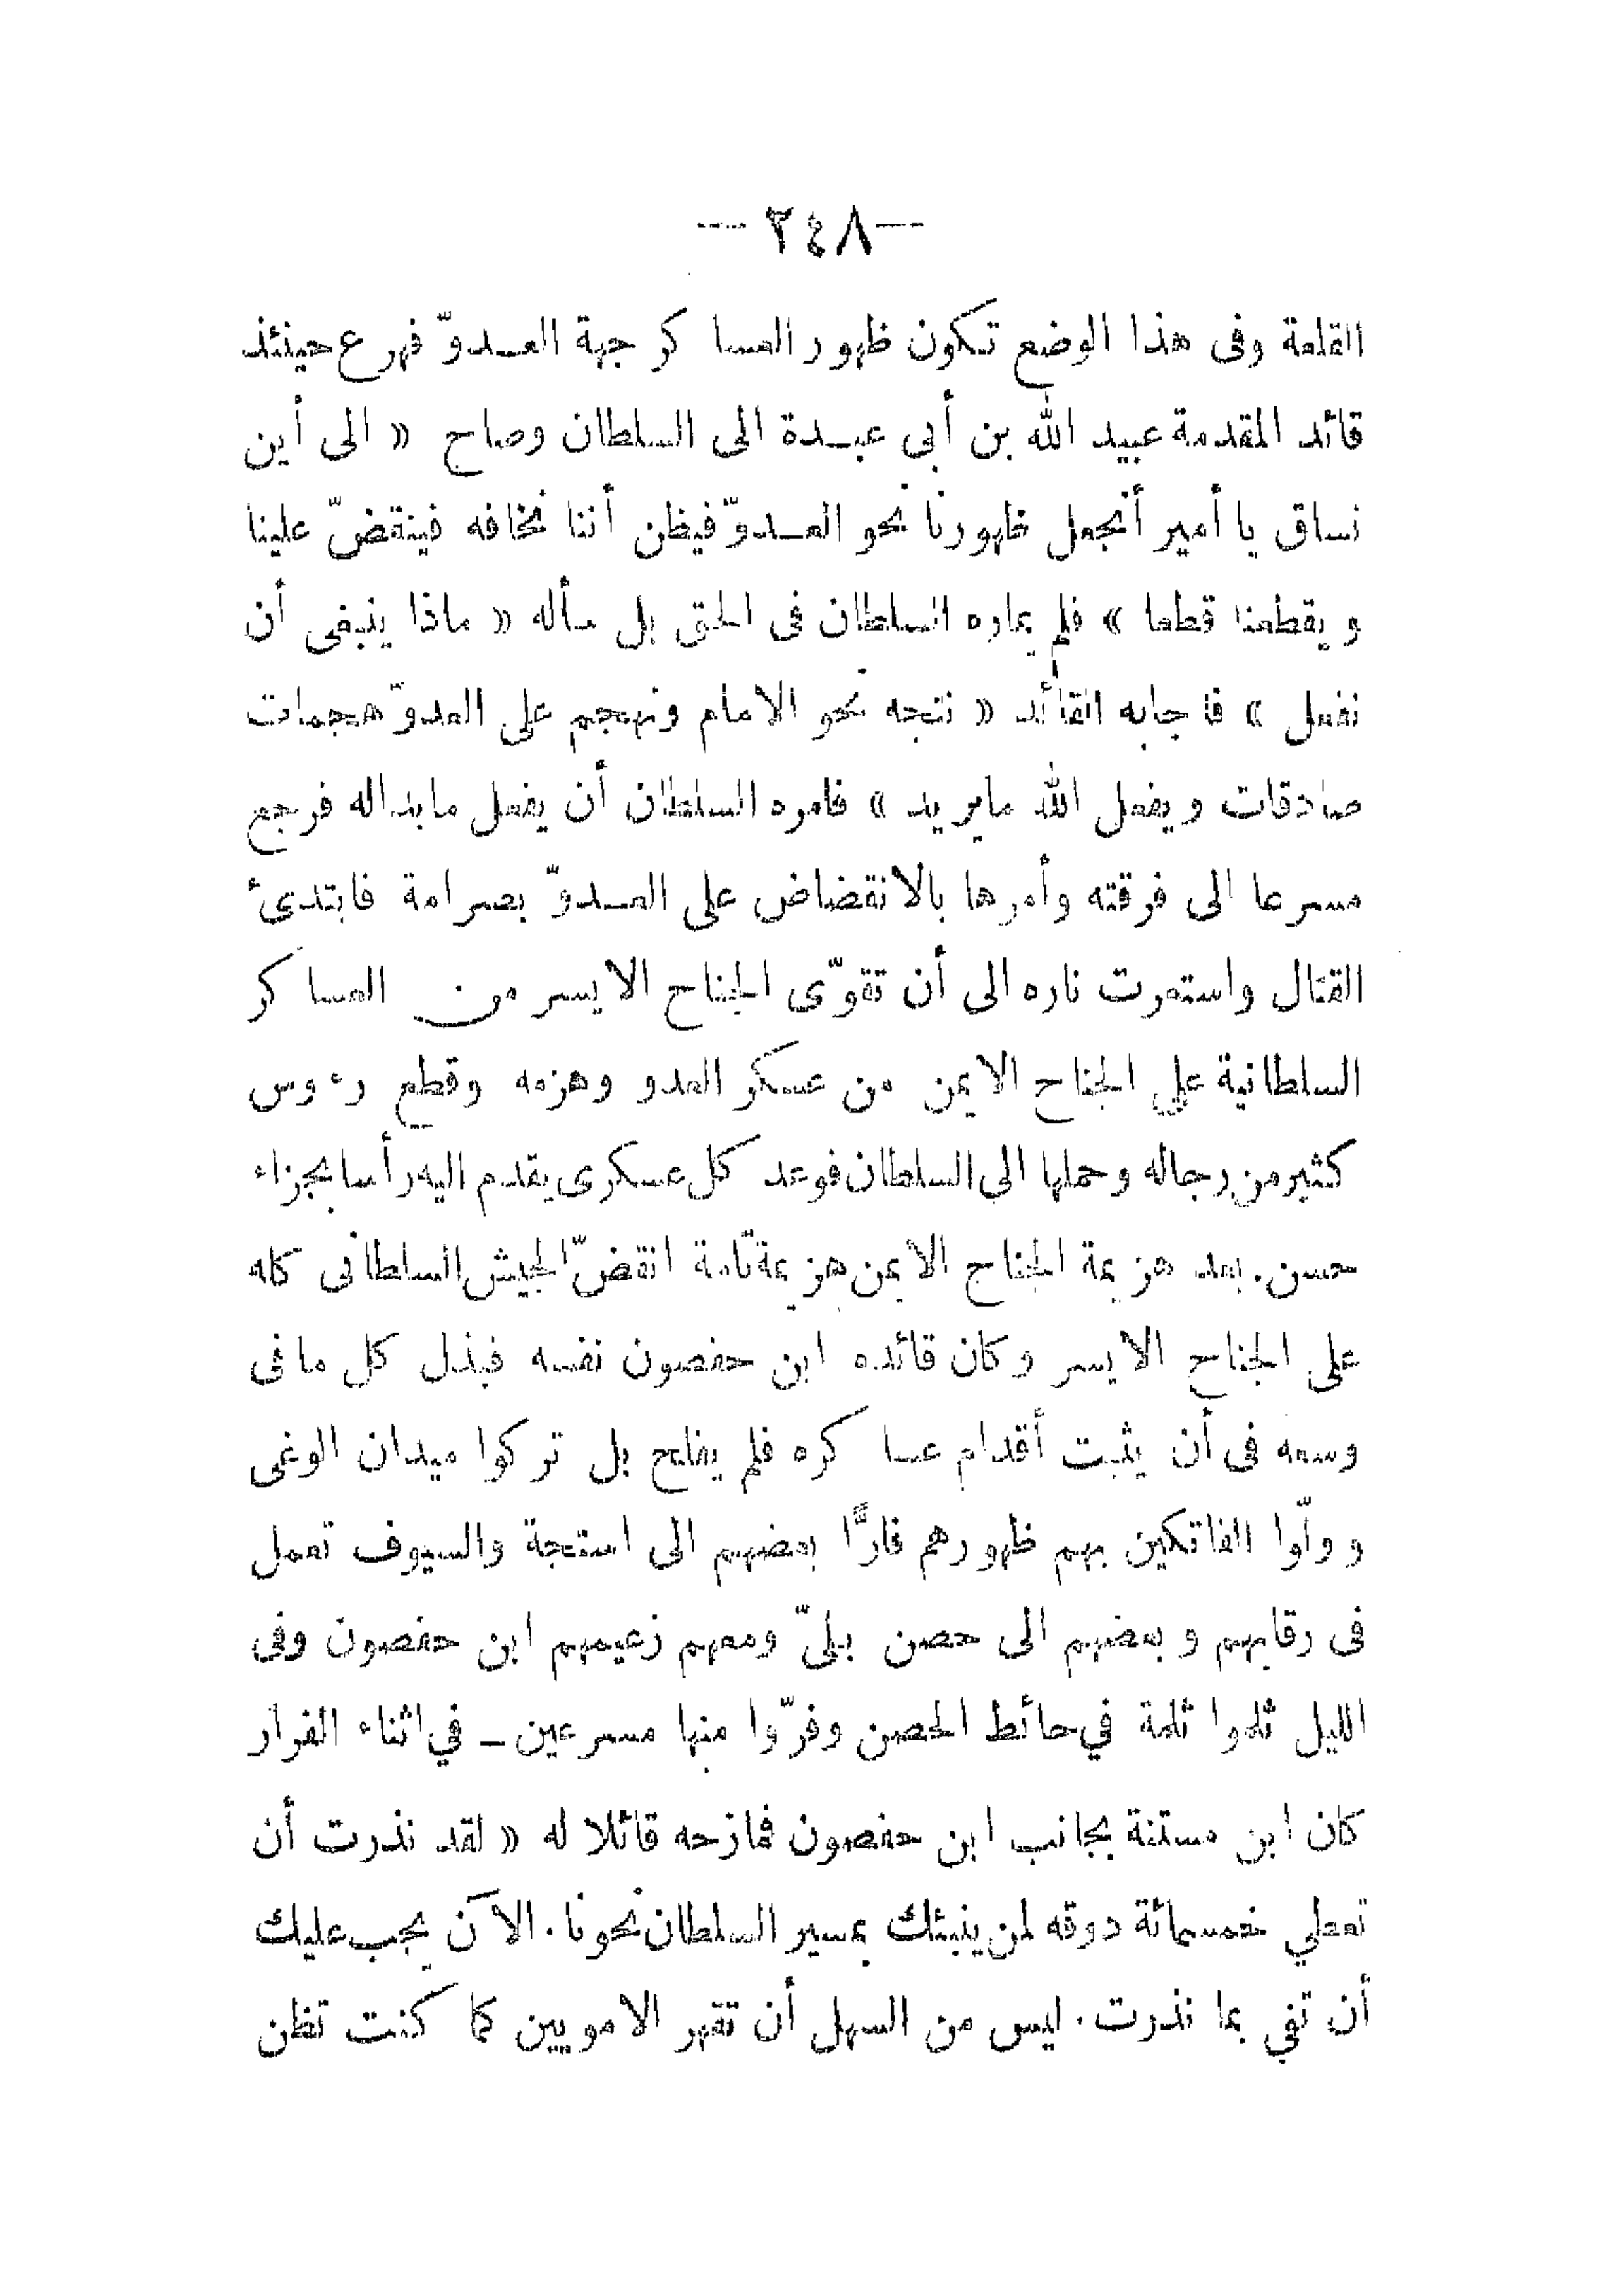 — ٢٤٨ —
القلعة وفى هذا الوضع تكون ظهور العساكر جهة العدوّ فهرع حينئذ
قائد المقدمة عبيد الله بن أبي عبدة الى السلطان وصاح « الى أين
نساق يا أمير أنجعل ظهورنا نحو العدوّ فيظن أننا نخافه فينقضّ علينا
ويقطعنا قطعا » فلم يماره السلطان فى الحق بل سأله « ماذا ينبغى أن
نفعل » فاجابه القائد « نتجه نحو الامام ونهجم على العدوّ هجمات
صادقات ويفعل الله مايريد » فامره السلطان أن يفعل مابداله فرجع
مسرعا الى فرقته وأمرها بالانقضاض على العدوّ بصرامة فابتدئ
القتال واستمرت ناره الى أن تقوّى الجناح الايسر من العساكر
السلطانية على الجناح الايمن من عسكر العدو وهزمه وقطع رءوس
كثير من رجاله وحملها الى السلطان فوعد كل عسكرى يقدم اليه رأسا بجزاء
حسن. بعد هزيمة الجناح الايمن هزيمة تامة انقضّ الجيش السلطانى كله
على الجناح الايسر وكان قائده ابن حفصون نفسه فبذل كل مافى
وسعه فى أن يثبت أقدام عساكره فلم يفلح بل تركوا ميدان الوغى
وولّوا الفاتكين بهم ظهورهم فارًّا بعضهم الى استجة والسيوف تعمل
فى رقابهم وبعضهم الى حصن بلىّ ومعهم زعيمهم ابن حفصون وفى
الليل ثلموا ثلمة في حائط الحصن وفرّوا منها مسرعين ـ في اثناء الفرار
كان ابن مستنة بجانب ابن حفصون فمازحه قائلا له « لقد نذرت أن
تعطي خمسمائة دوقه لمن ينبئك بمسير السلطان نحونا. الآن يجب عليك
أن تفي بما نذرت. ليس من السهل أن تقهر الامويين كما كنت تظن